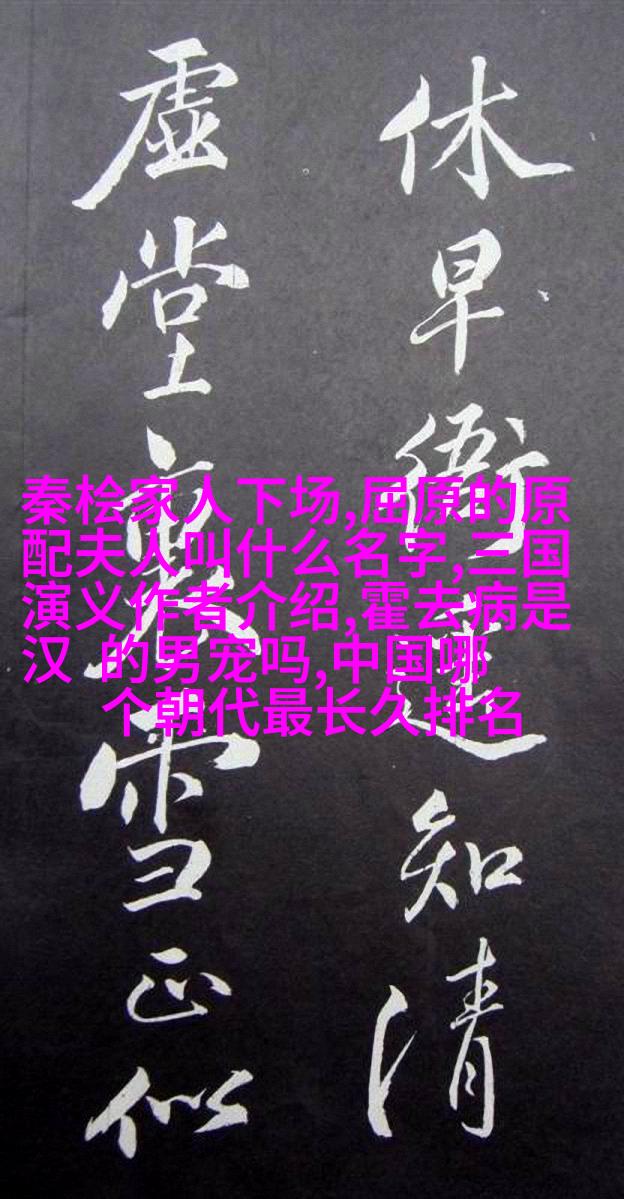 休早衙知清
虚堂雪正似
秦桧家人下场,屈原的原
配夫人叫什么名字,三国
演义作者介绍,霍去病是
汉 的男宠吗,中国哪
个朝代最长久排名